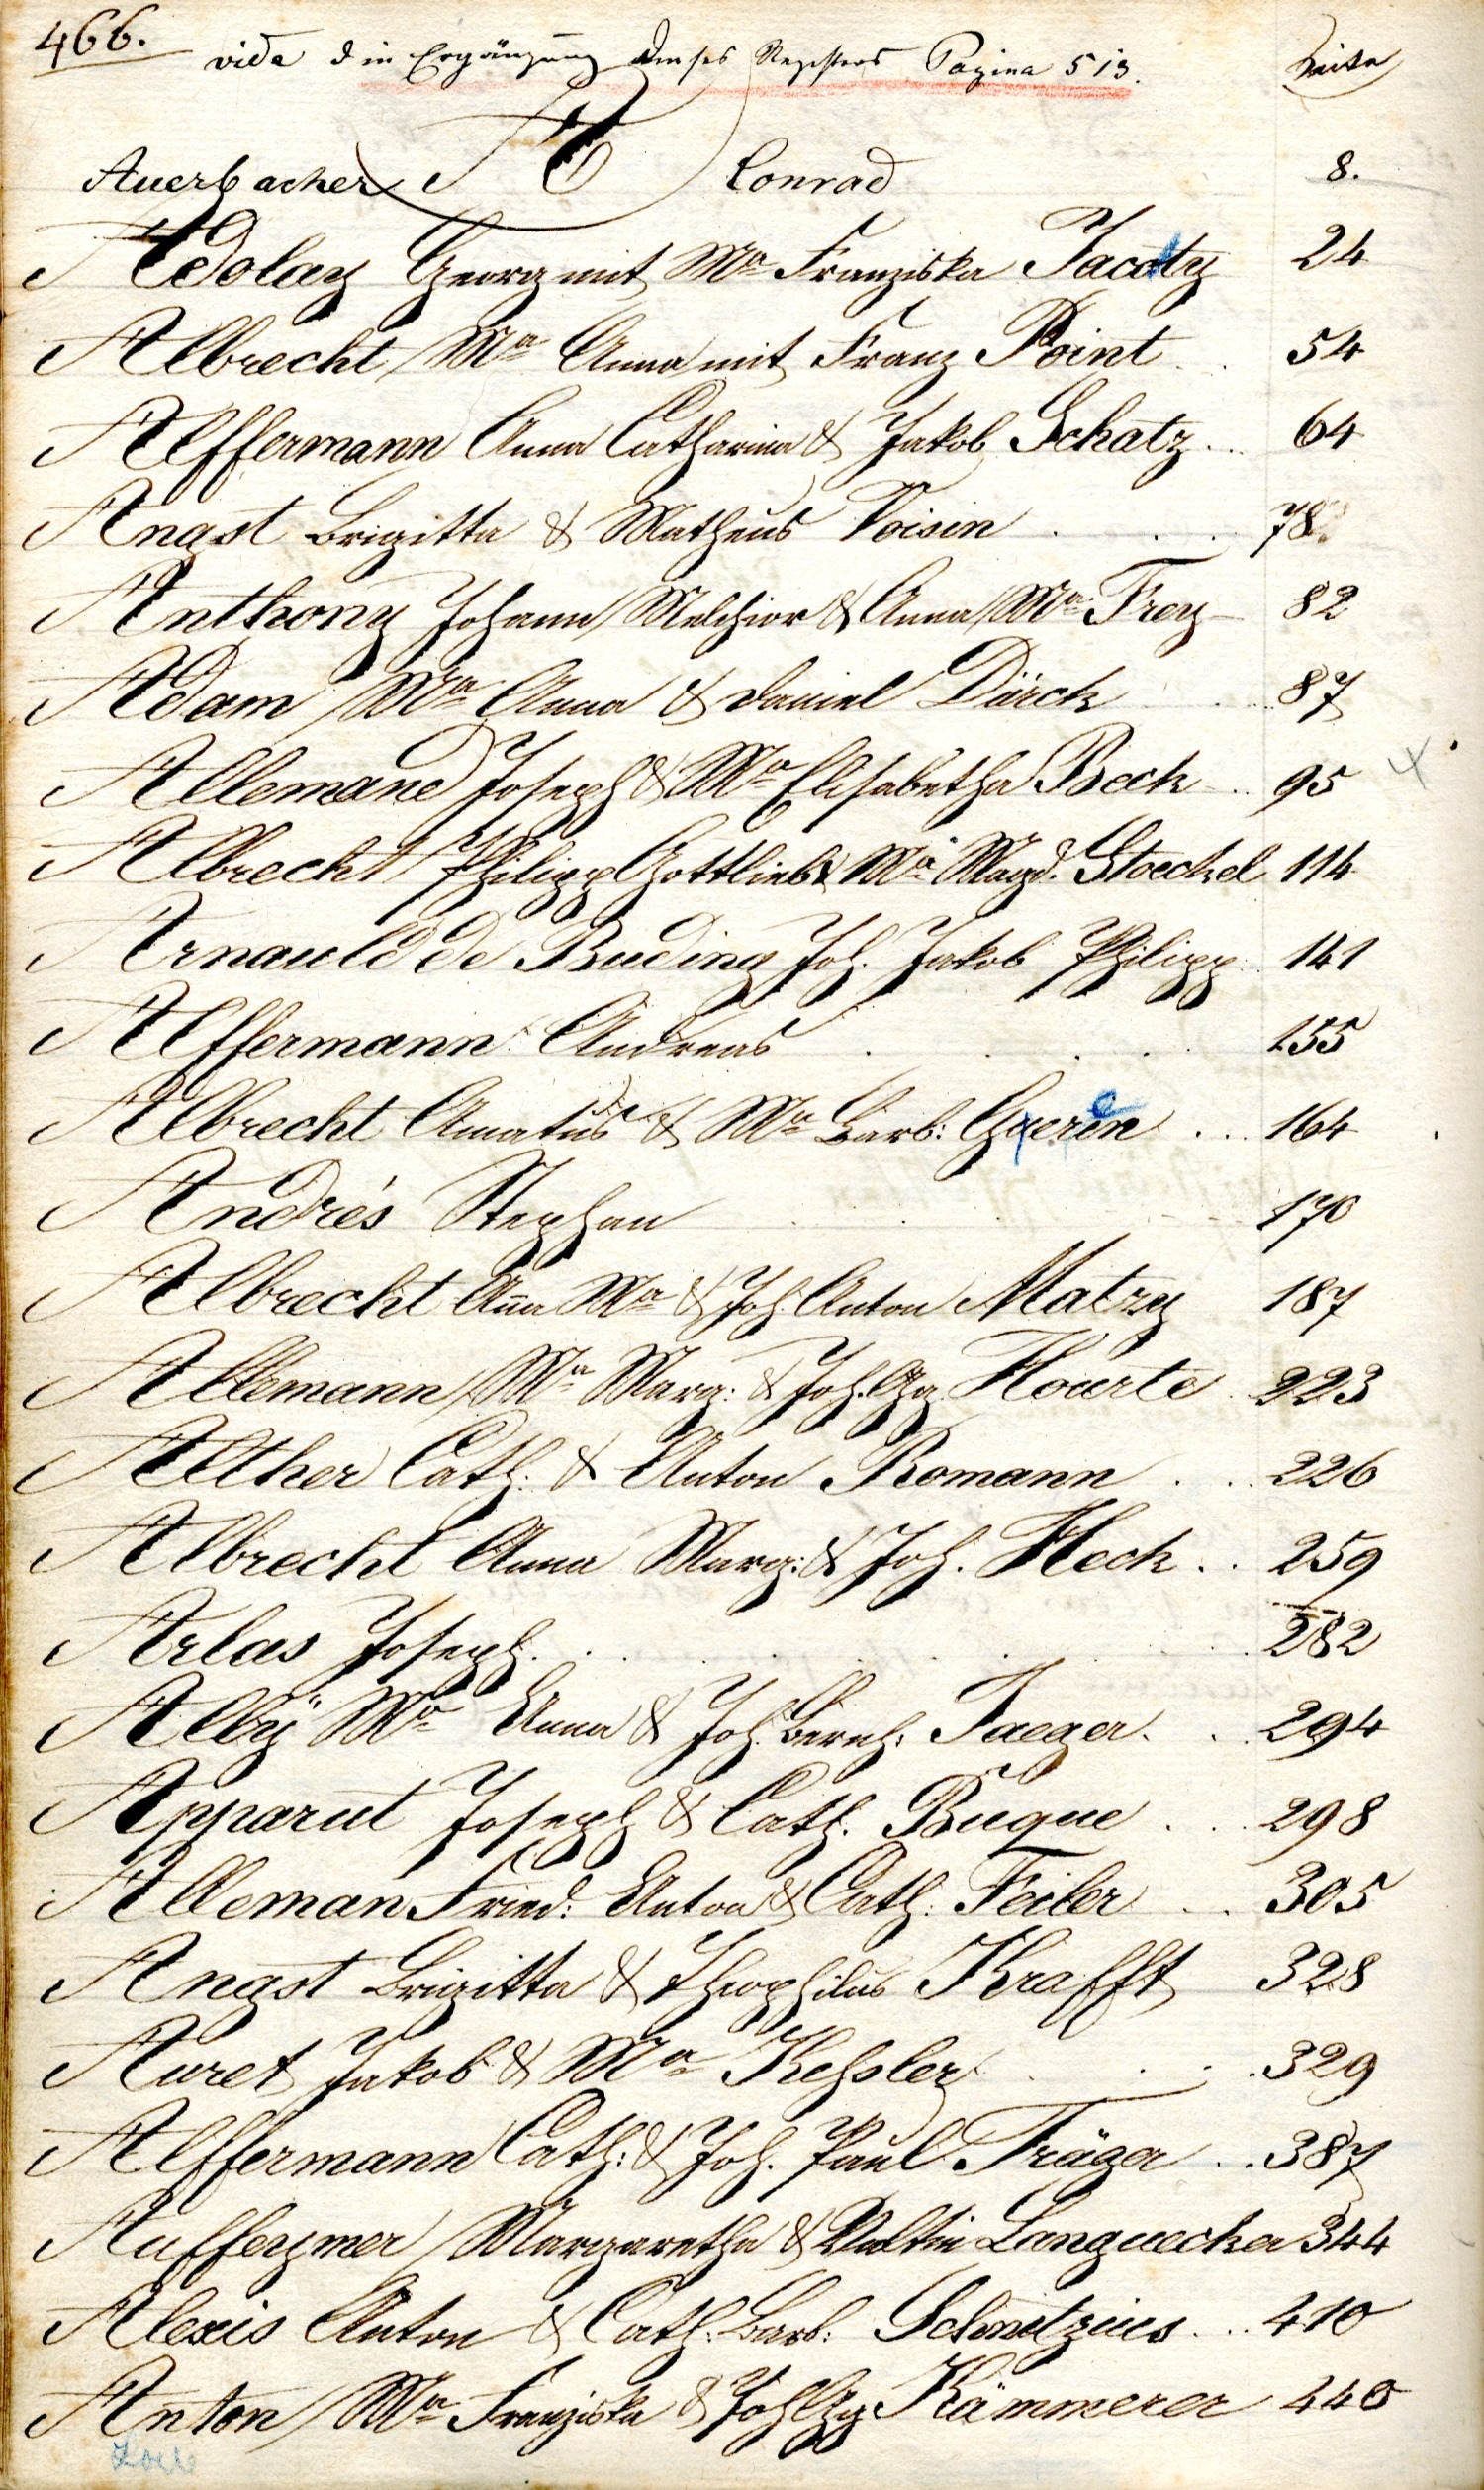 466.
vide die Ergänzung dieses Registers Pagina 513. Seite
A
Auerbacher Conrad 8.
Adolay Georg mit Ma Franziska Jacoty 24
Albrecht Ma Anna mit Franz Point .. 54
Alffermann Anna Catharina & Jakob Schatz ... 64
Angst Brigitta & Matheus Voisin . . . . 78
Anthony Johann Melchior & Anna Ma Frey 82
Adam Ma Anna & Daniel Dürck 87
Allemand Joseph & Ma Elisabetha Beck .. 95
Albrecht Philipp Gottlieb & Ma Magd. Stoeckel 114
Arnauld de Buding Joh. Jakob Philipp 141
Alffermann Andreas . . . . 155
Albrecht Amatus & Ma Barb: Gueren ... 164
Andrés Stephan 170
Albrecht Ana Ma & Joh Anton Matzy 187
Allemann Ma Marg: & Joh. Gg Hourte 223
Alther Cath. & Anton Romann ... 226
Albrecht Anna Marg: & Joh. Heck .. 259
Arlas Joseph . . . . 282
Alby Ma Anna & Joh. Bernh. Jaeger . . 294
Apparut Joseph & Cath. Buque ... 298
Alleman Fried: Anton & Cath. Feiler .. 305
Angst Brigitta & Theophilus Krafft 328
Auret Jakob & Ma Keßler . . . 329
Alffermann Cath: & Joh. Paul Träger .. 387
Auffeymer Margaretha & Valtin Languecker 344
Alexis Anton & Cath. Barb: Schmetzius ... 410
Anton Ma Franziska & Joh Gg Kämmerer 440